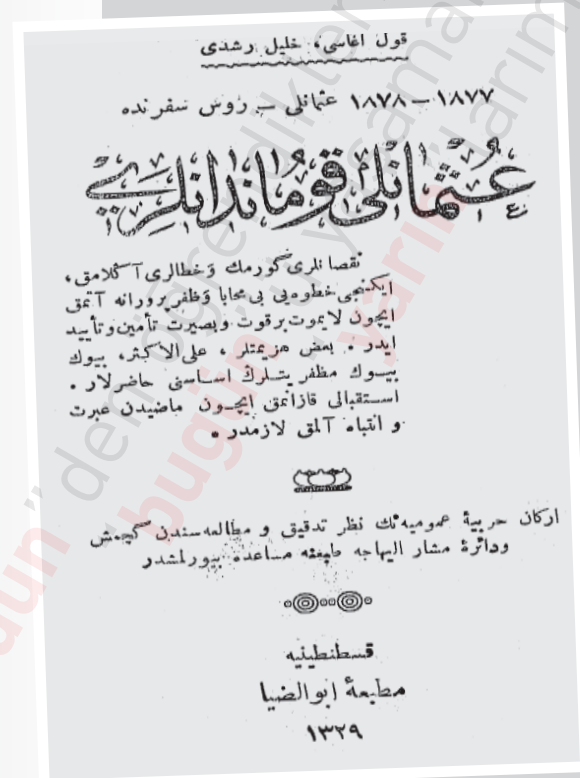 قول اغاسی، خلیل رشدی
۱۸۷۷ – ۱۸۷۸ عثمانلی – روس سفرنده
عثمانلی قوماندانلری
نقصانلری گورمك وخطالری آڭلامق،
ایكنجی خطوه‌یی بی محابا وظفر پرورانه آتمق
ایچون لایموت برقوت وبصیرت تأمین وتأیید
ایدر . بعض هزیمتلر ، علی الاكثر، بیوك
بیــوك مظفریتــلرك اســاسنی حاضرلار .
اســتقبالی قازانمق ایچــون ماضیدن عبرت
و انتباه آلمق لازمدر .
اركان حربیهٔ عمومیه‌نك نظر تدقیق و مطالعه‌سندن گچمش
ودائرهٔ مشار الیهاجه طبعنه مساعده بیورلمشدر
قسطنطینیه
مطبعهٔ ابوالضیا
۱۳۲۹
"dün" den öğrendikler
"bugün" ü yaşamar
"yarın"